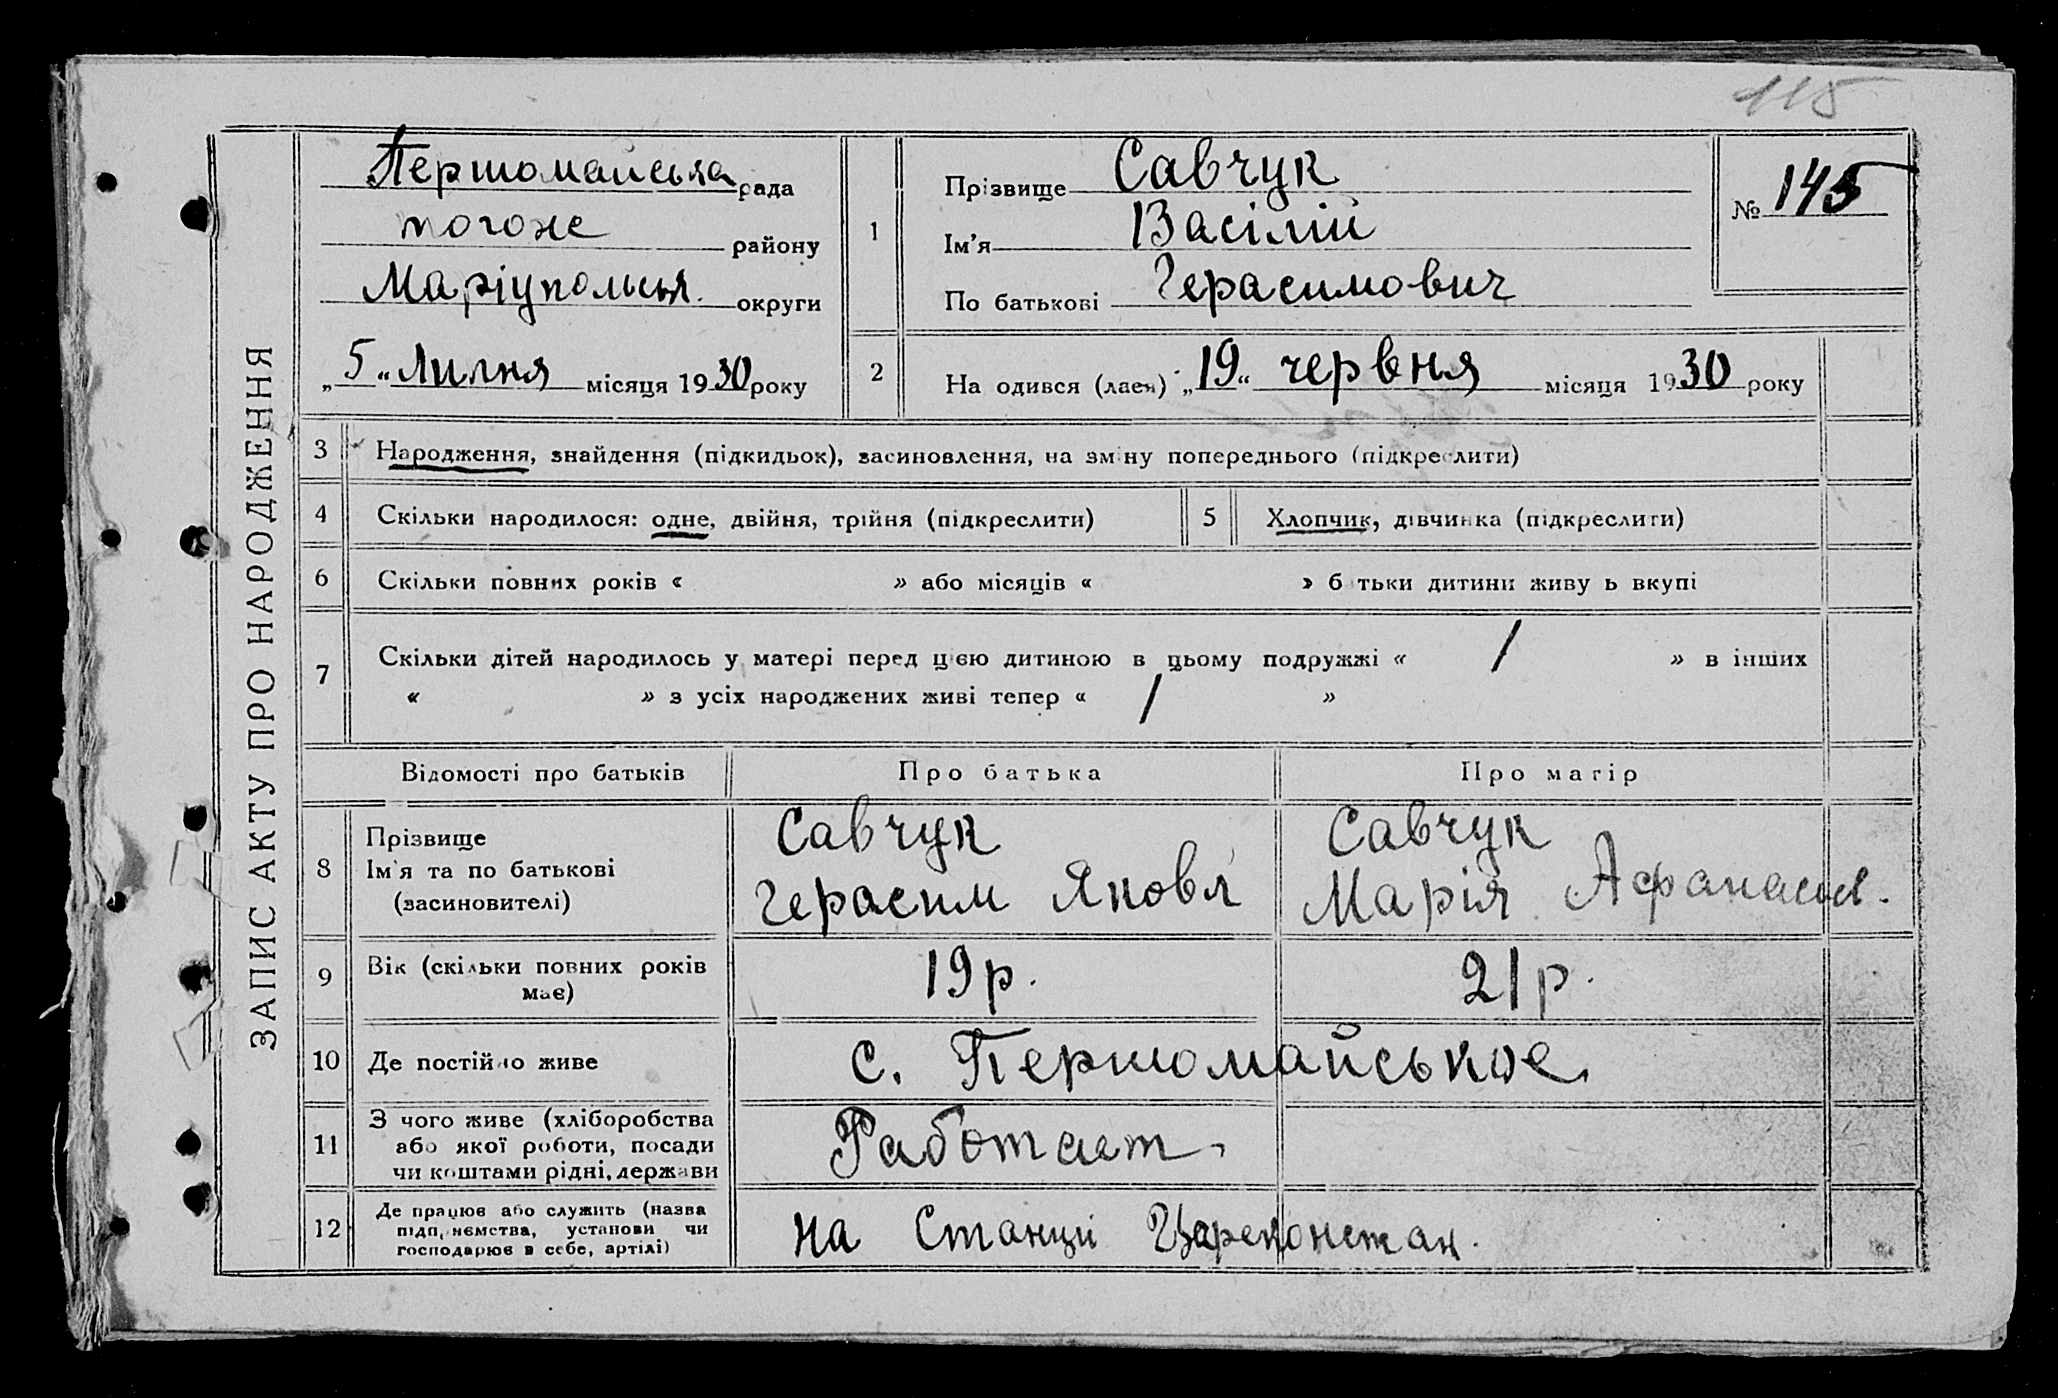 115
ЗАПИС АКТУ ПРО НАРОДЖЕННЯ
Першомайська рада
тогоже району
Маріупольськ. округи
„5“ Липня місяця 1930 року
1
Прізвище Савчук
Ім'я Васілій
По батькові Герасимович
№ 145
2
На одився (лася) „19“ червня місяця 1930 року
3 Народження, знайдення (підкидьок), засиновлення, на зміну попереднього (підкреслити)
4 Скільки народилося: одне, двійня, трійня (підкреслити)
5 Хлопчик, дівчинка (підкреслити)
6 Скільки повних років « » або місяців « » б тьки дитини живу ь вкупі
7 Скільки дітей народилось у матері перед цією дитиною в цьому подружжі « / » в інших
« » з усіх народжених живі тепер « / »
Відомості про батьків Про батька Про матір
8 Прізвище
Ім'я та по батькові
(засиновителі)
Савчук
Герасим Яковл
Савчук
Марія Афанасьв.
9 Вік (скільки повних років
має)
19 р.
21 р.
10 Де постійно живе
с. Першомайськое.
11 З чого живе (хліборобства
або якої роботи, посади
чи коштами рідні, держави
Работает
12 Де працює або служить (назва
підприємства, установи чи
господарює в себе, артілі)
на Станци Цареконстан.